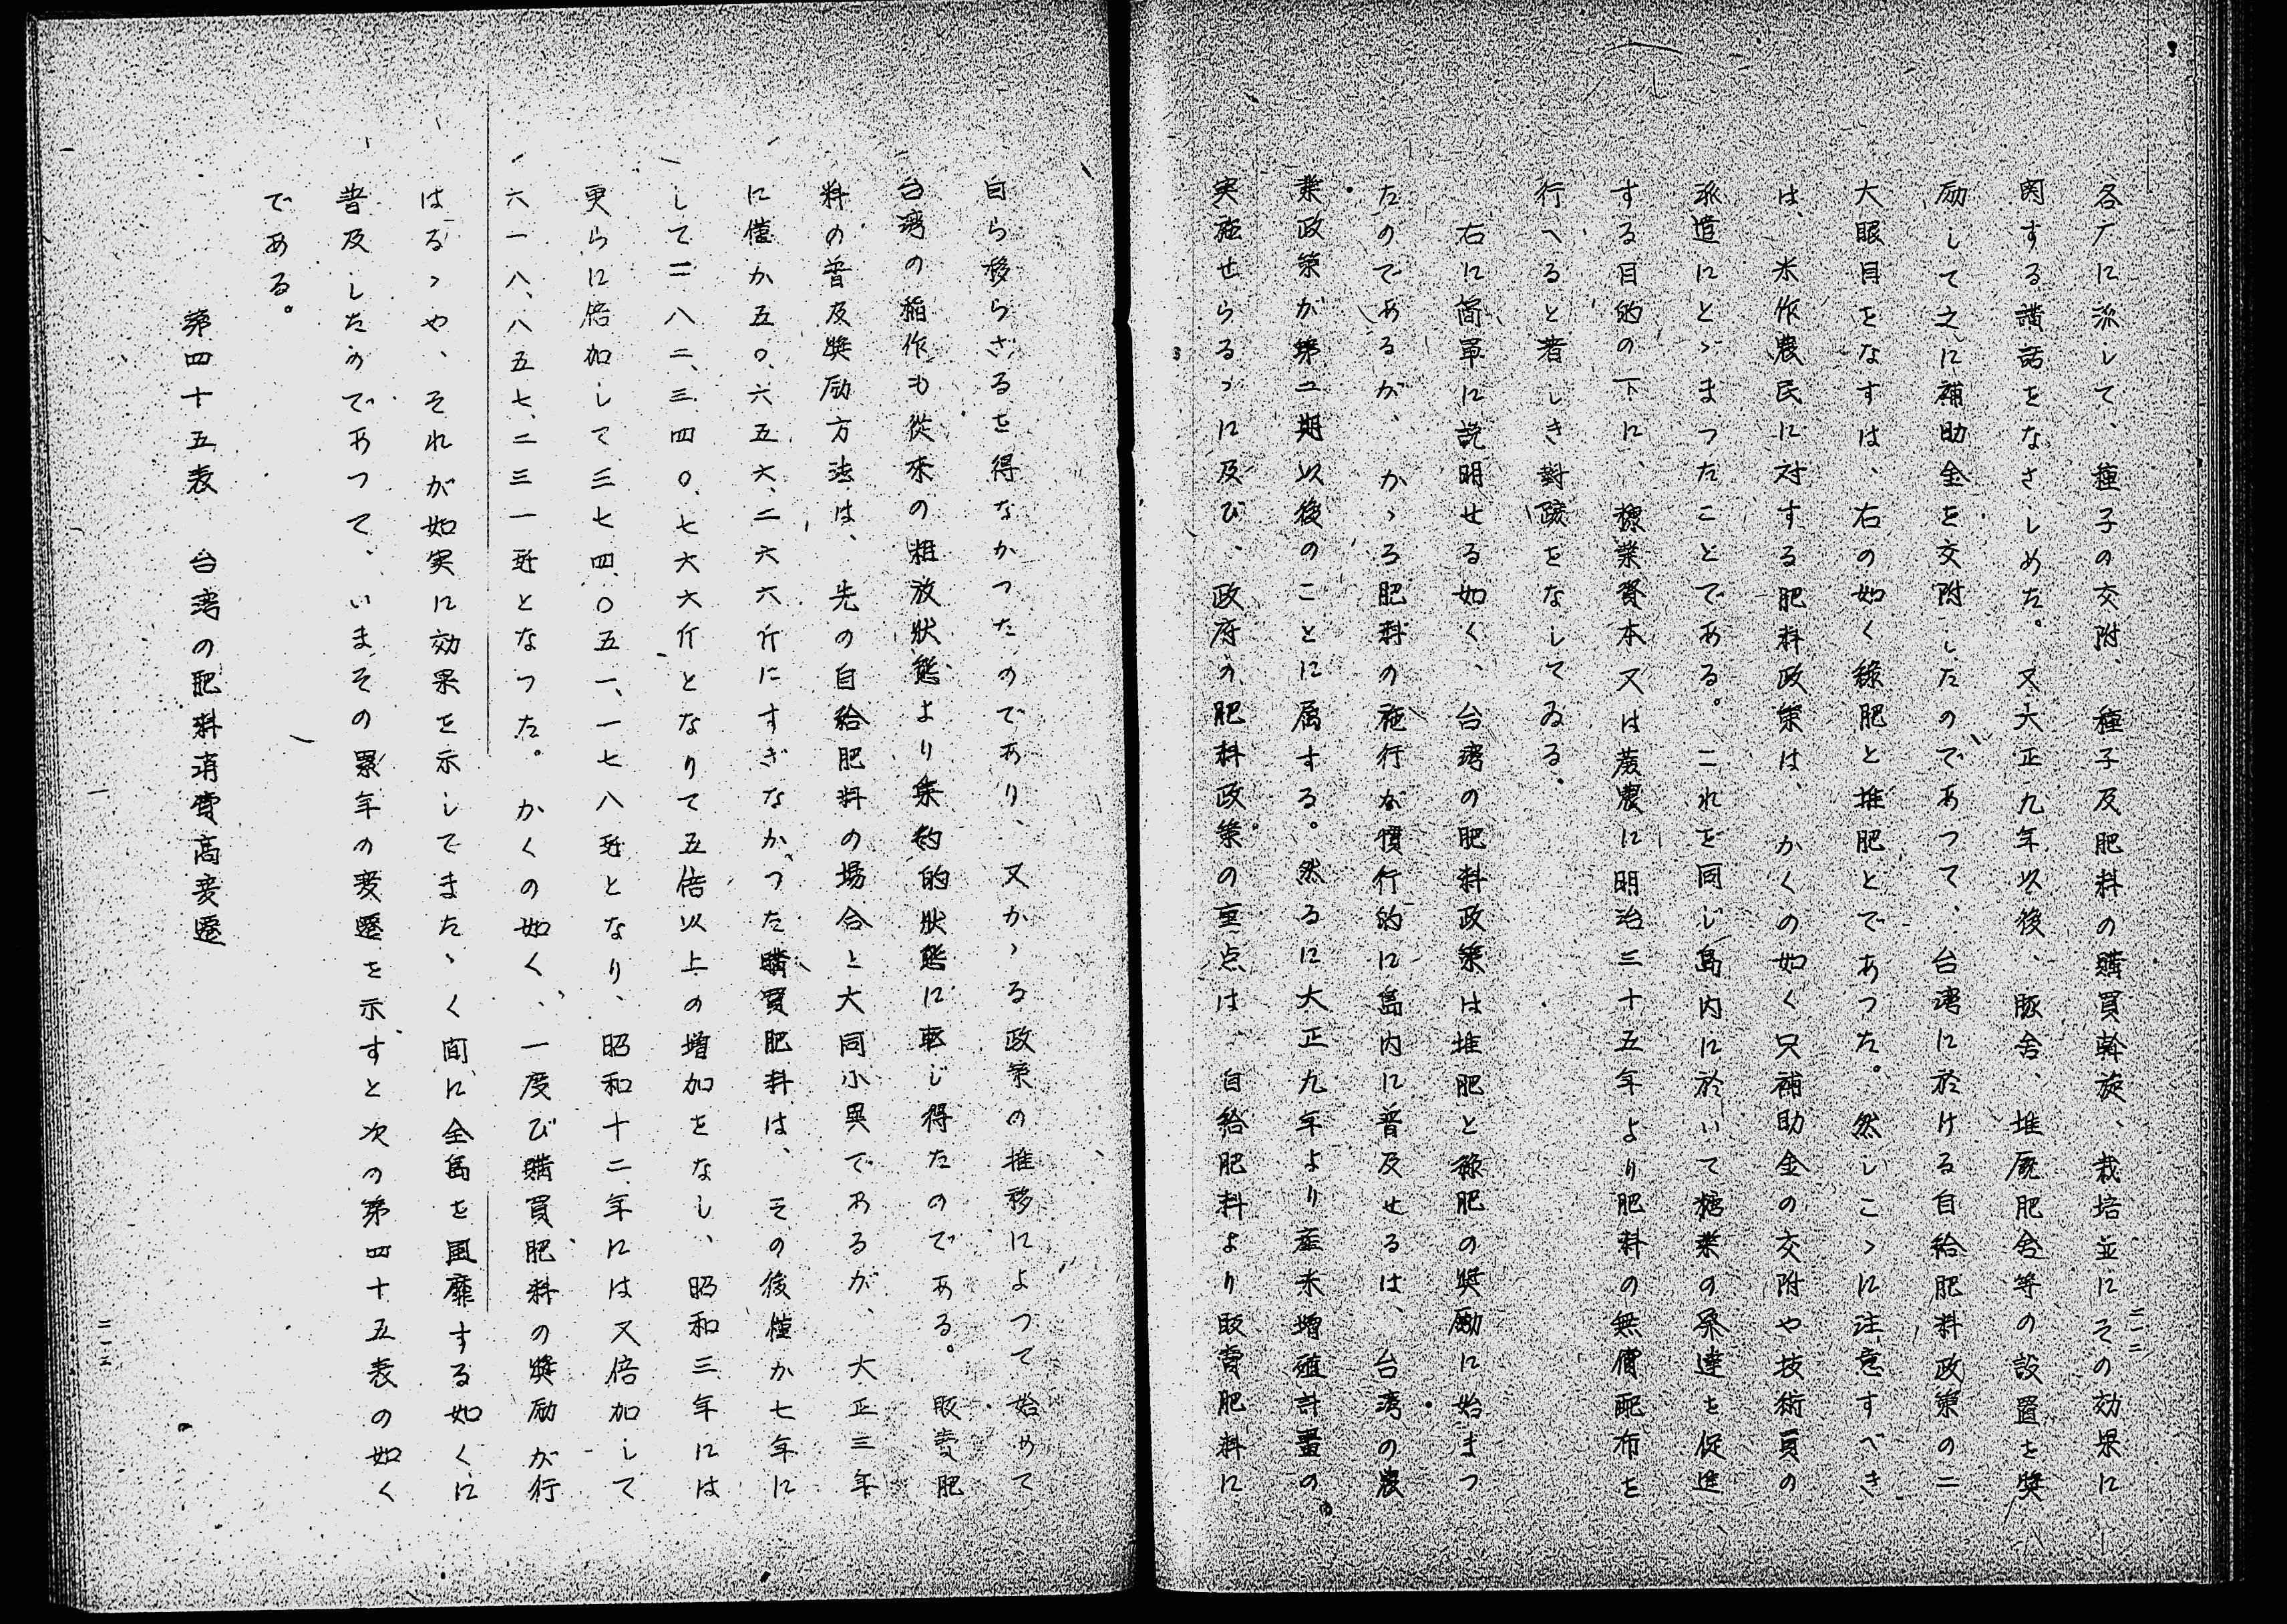 各庁に派して、種子の交附、種子及肥料の購買斡旋、栽培並にその効果に
関する講話をなさしめた。又大正九年以後、豚舎、堆厩肥舎等の設置を奨
励して之に補助金を交附したのであつて、台湾に於ける自給肥料政策の二
大眼目をなすは、右の如く緑肥と堆肥とであつた。然しこゝに注意すべき
は、米作農民に対する肥料政策は、かくの如く只補助金の交附や技術員の
派遣にとゞまつたことである。これを同じ島内に於いて糖業の発達を促進
する目的の下に、糖業資本又は蔗農に明治三十五年より肥料の無償配布を
行へると著しき対蹠をなしてゐる。
右に簡単に説明せる如く、台湾の肥料政策は堆肥と緑肥の奨励に始まつ
たのであるが、かゝる肥料の施行が慣行的に島内に普及せるは、台湾の農
業政策が第二期以後のことに属する。然るに大正九年より産米増殖計画の
実施せらるゝに及び、政府の肥料政策の重点は、自給肥料より販売肥料に
三一二
自ら移らざるを得なかつたのであり、又かゝる政策の推移によつて始めて
台湾の稲作も従来の粗放状態より集約的状態に転じ得たのである。販売肥
料の普及奨励方法は、先の自給肥料の場合と大同小異であるが、大正三年
に僅か五〇、六五六、二六六斤にすぎなかつた購買肥料は、その後僅か七年に
して二八二、三四〇、七六六斤となりて五倍以上の増加をなし、昭和三年には
更らに倍加して三七四、〇五一、一七八瓩となり、昭和十二年には又倍加して
六一八、八五七、二三一瓩となつた。かくの如く、一度び購買肥料の奨励が行
はるゝや、それが如実に効果を示してまたゝく間に全島を風靡する如くに
普及したのであつて、いまその累年の変遷を示すと次の第四十五表の如く
である。
第四十五表　台湾の肥料消費高変遷
三一三